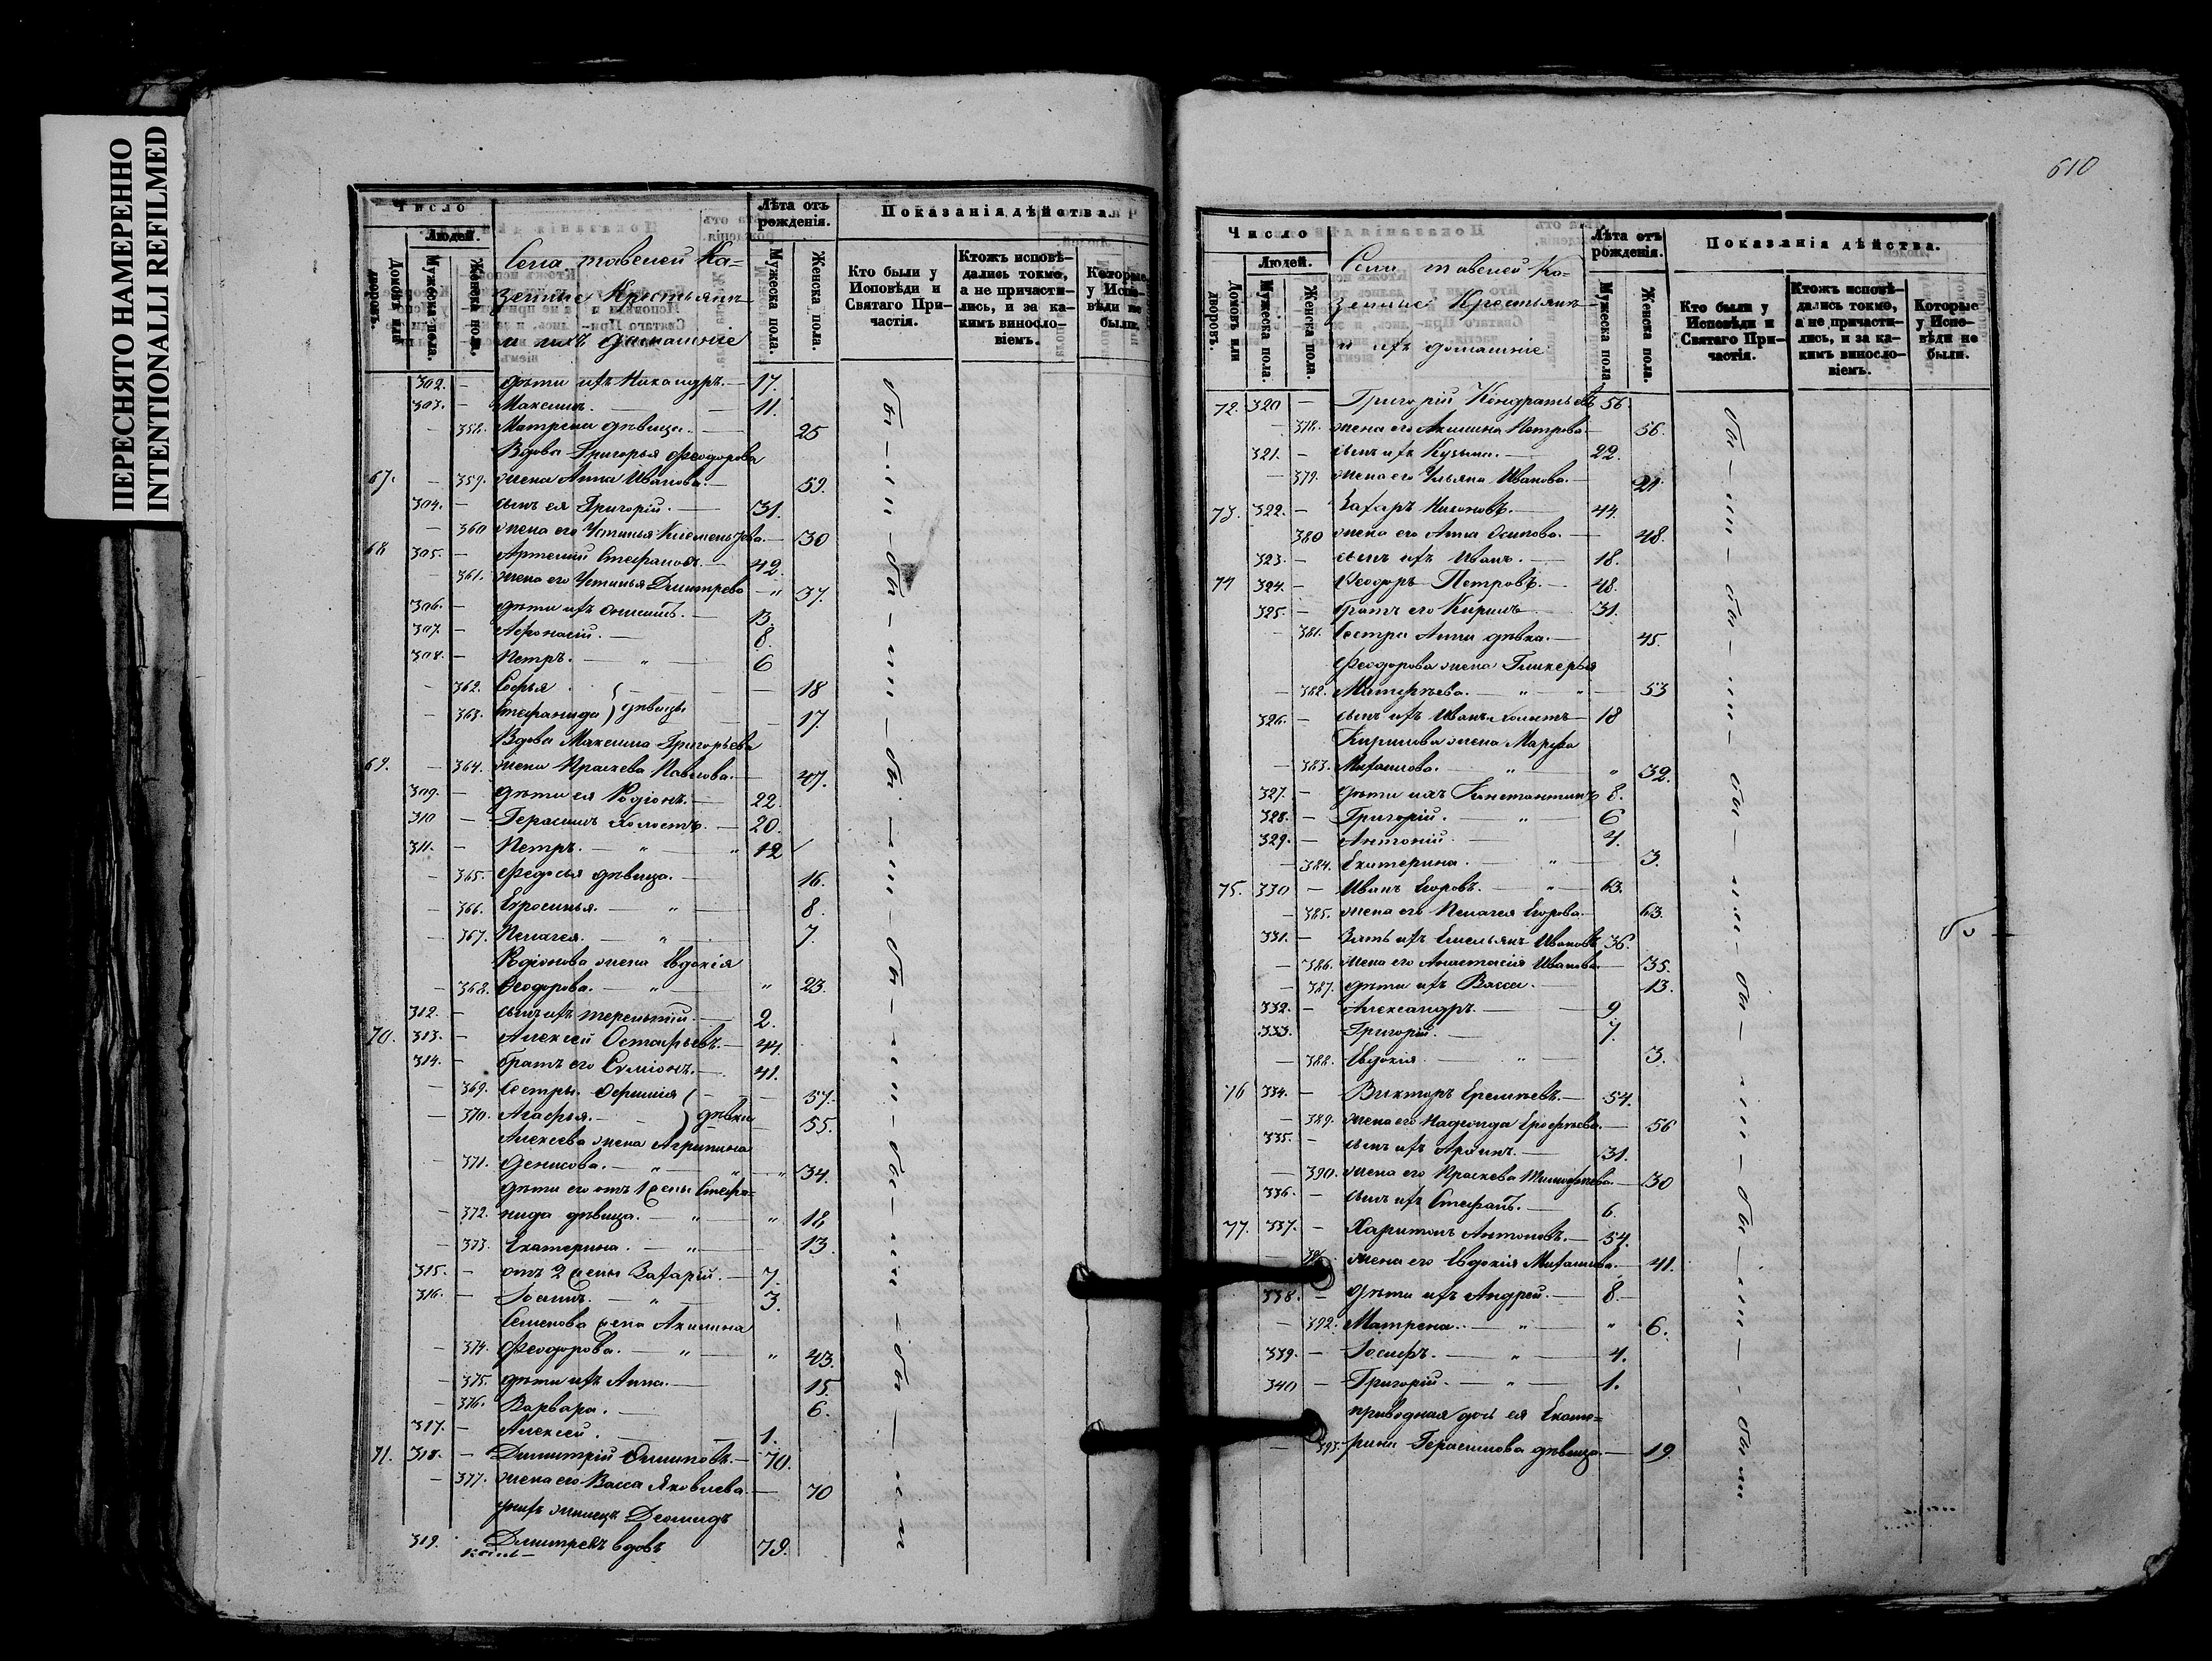 ПЕРЕСНЯТО НАМЕРЕННО
INTENTIONALLI REFILMED
Число
Людей.
Домовъ или дворовъ.
Мужеска пола.
Женска пола.
Села тавелей Ка=
зенные Крестьяне
и ихъ домашніе
Лѣта отъ рожденія.
Мужеска пола.
Женска пола.
Показанія дѣйства.
Кто были у Исповѣди и Святаго Причастія.
Ктожъ исповѣдались токмо, а не причастились, и за какимъ винословіемъ.
Которые у Исповѣди не были.
302. — дѣти ихъ Никандръ. — 17.
303. — Максимъ. — 11.
— 358. Матрена дѣвица. — 25
Вдова Григорья Феодорова
67. — 359. жена Анна Иванова. — 59.
304. — сынъ ея Григорій. — 31.
— 360 жена его Устинья Клементьева. — 30
68 305. — Артемій Стефановъ. — 42.
— 361. жена его Устинья Димитрева — " 37.
306. — дѣти ихъ — 13.
307. — Афонасій. — 8.
308. — Петръ. — " — 6
— 362. Софья — 18
— 363. Стефанида } дѣвицы — 17.
Вдова Максима Григорьева
69. — 364. жена Праскева Павлова. — 47.
309. — дѣти ея Родіонъ. — 22.
310 — Герасимъ холостъ. — 20.
311. — Петръ. — " " 12
— 365. Федосья дѣвица. — 16.
— 366. Ефросинья. — " — 8.
— 367. Пелагея. — " — 7.
Родіонова жена Евдокія
— 368. Феодорова. — " — " 23.
312. — сынъ ихъ Терентій — 2.
70. 313. — Алексей Остафьевъ. — 44.
314. — братъ его Симіонъ. — 41.
— 369. Сестры — 57.
— 370. Агафья. — } дѣвки — 55.
Алексева жена Агрипина
— 371. Денисова. — " " — " 34.
дѣти его отъ 1 жены Стефа=
— 372. нида дѣвица. — " — " 18,
— 373. Екатерина. — " — 13.
315. — отъ 2 жены Захарій. — 7.
316. — " — 3.
Семенова жена Акилина
— 374. Феодорова. — " — " 43.
— 375. дѣти ихъ Анна. — 15.
— 376. Варвара. — 6.
317. — Алексей. — 1.
71. 318. — Димитрій — 70.
— 377. жена его Васса Яковлева. — 70
у нихъ жилецъ Деомидъ
319. Димитревъ вдовъ 79.
бы — ли — бы — ли — бы — ли — бы — ли — бы — ли — бы — ли
610
Число
Людей.
Домовъ или дворовъ.
Мужеска пола.
Женска пола.
Села тавелей Ка=
зенные Крестьяне
и ихъ домашніе
Лѣта отъ рожденія.
Мужеска пола
Женска пола.
Показанія дѣйства.
Кто были у Исповѣди и Святаго Причастія.
Ктожъ исповѣдались токмо, а не причастились, и за какимъ винословіемъ.
Которые у Исповѣди не были.
72. 320 — Григорій Кондратьевъ 56.
— 378. жена его Акилина Петрова. — 56.
321. — сынъ ихъ Кузьма. — 22.
— 379. жена его Ульяна Иванова. — 21.
73. 322. — Захаръ Никоновъ. — 44.
380 жена его Анна Осипова. — 48.
323. — сынъ ихъ Иванъ. — 18.
74 324. — Феодоръ Петровъ. — 48.
325. — братъ его Кирилъ — 31.
— 381. Сестра Анна дѣвка. — 45.
Феодорова жена Гликерья
— 382. Матфѣева. — " " — 53
326. — сынъ ихъ Иванъ холостъ — 18
Кирилова жена Марфа
— 383. Михаилова. — " " 32.
327. — дѣти ихъ Константинъ 8.
328. — Григорій. — " — 6
329. — Антоній — 4.
— 384. Екатерина. — " — 3.
75. 330 — Иванъ Егоровъ. — " — 63.
— 385. жена его Пелагея Егорова. — 63.
331. — Зять ихъ Емельянъ Ивановъ 36.
— 386. жена его Анастасія Иванова. — 35.
— 387. дѣти ихъ Васса. — 13.
332. — Александръ. — 9.
333. Григорій. — 7.
— 388. Евдокія. — " — 3.
76 334. — Викторъ Еремѣевъ. — 54.
— 389. жена его Надежда Ерофѣева. — 56
335. — сынъ ихъ — 31.
— 390. жена его Праскева Тимофѣева. — 30
336. — сынъ ихъ Стефанъ. — 6.
77. 337. — Харитонъ Антоновъ. — 54.
— 391. жена его Евдокія Михаилова. — 41.
338. — дѣти ихъ Андрей. — 8.
— 392. Матрена. — " — " 6.
339. — Іосифъ. — " — 4.
340 — Григорій. — " — 1.
приводная дочь ея Екате=
— 393. рина Герасимова дѣвица. — 19.
бы — ли — бы — ли — бы — ли — бы — ли — бы — ли — были